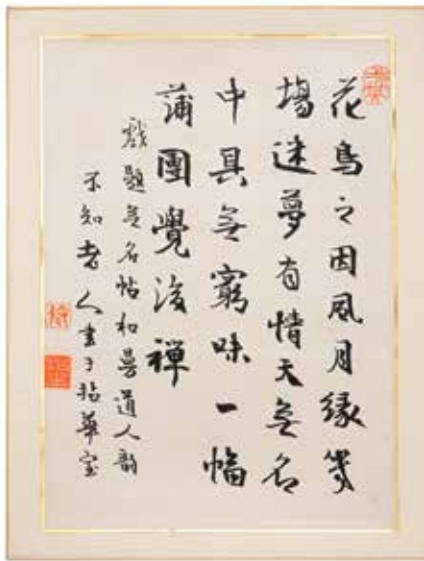 花鳥之因風月緣幾
場迷夢有情天無名
中具無窮味一幅
蒲團覺後禪
戲題無名帖和曼道人韵
不知老人書于拈華室